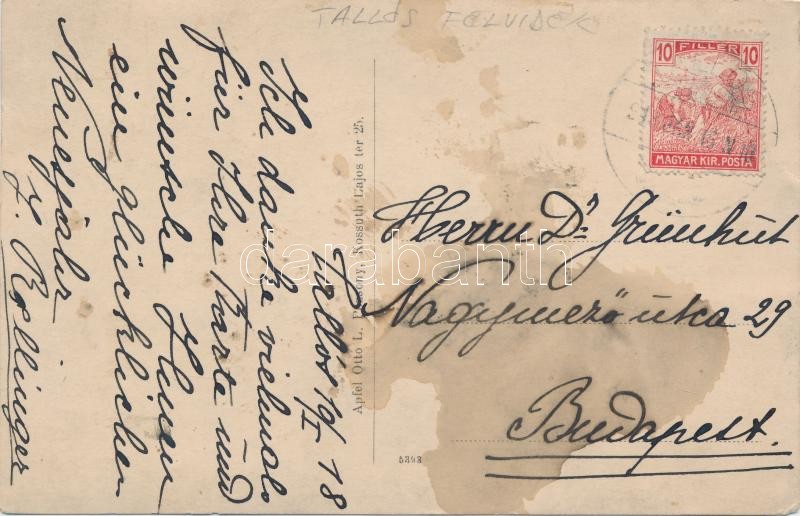 TALLÓS FELVIDÉK
10 FILLÉR 10
MAGYAR KIR. POSTA
Tallós 10/I 18
Ich danke vielmals
für Ihre Karte und
wünsche Ihnen
ein glückliches
Neuesjahr
J. Rollinger
Apfel Otto L. Pozsony, Kossuth Lajos ter 25.
5393
Herrn Dr. Grünhut
Nagymező útca 29
Budapest.
darabanth